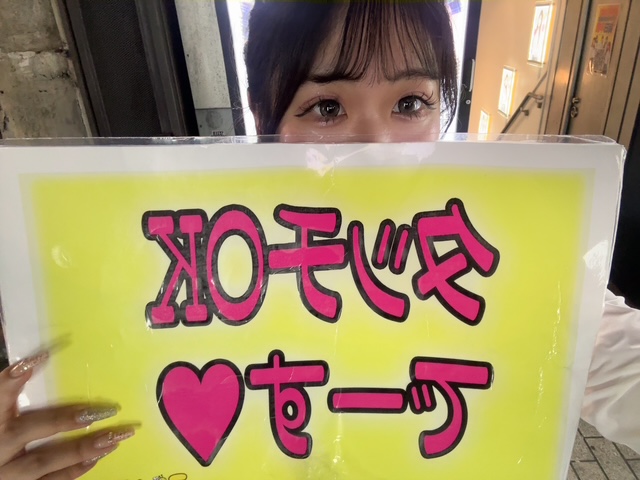 タッチOK
でーす♥